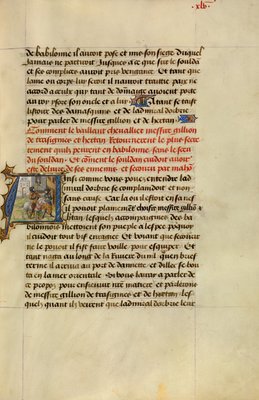 .xlv.
de babilonne il auroit pose et mis son siege duquel
jamais ne partiroit jusques a ce que le souldan
et ses complices auroit pris vengance. Et tant que
lame ou corps luy seroit il nauroit traittie paix ne
accord a ceulx qui tant de dommage avoient porte
an roy ysore son oncle et a luy Atant se taist
listoire des damasquins et de ladmiral dorbrie
pour parler de messire gillion et de hertan
Comment le vaillant chevallier messire gillion
de trasignies et hertan retournerent le plus secre
tement quilz peurent en babilonne sans le sceu
du souldan. Et comment le souldan cuidoit avoir
este delivre de ses ennemis et secouru par mahon
Ainsi comme vous pouez entendre lad
miral dorbrie se complaindoit et non
sans cause. Car la ou il estoit en sanc
il pouoit plainement veoir messire gillion
hertan lesquelz accompaignies des ba
bilonnois mettoient son pueple a lespee pourquoy
il cuidoit tout vif enragier. Et voiant que secourir
ne le pouoit il fist faire voille pour esquiper. Et
tant naga au long de la riviere du nil quen brief
terme il arriva au port de damiette et dillec se bou
ta en la mer orientale. Si vous lairay a parler de
ce propos pour ensieuir nostre matiere et parlerons
de messire gillion de trasignies et de hertan les
quelz quant ilz veirent que ladmiral dorbrie leur